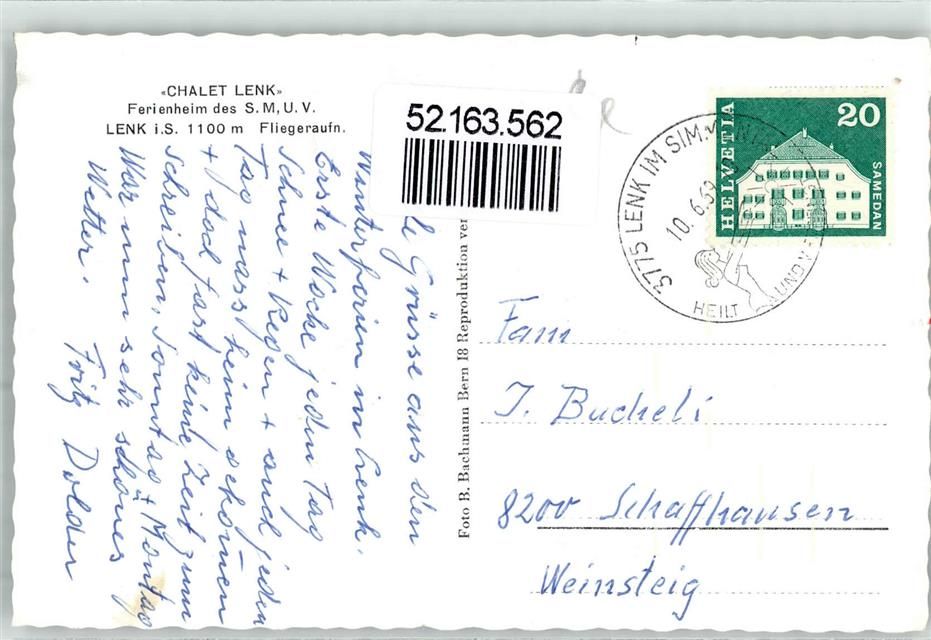 «CHALET LENK»
Ferienheim des S.M.U.V.
LENK i.S. 1100 m Fliegeraufn.
52.163.562
HELVETIA
20
SAMEDAN
3775 LENK IM SIMMENTAL
10.6.69
HEILT UND V
Foto B. Bachmann Bern 18 Reproduktion ver
Grüsse aus den
Winterferien in Lenk.
Erste Woche jeden Tag
Schnee + Regen + auch jeden
Tag nass heim gekommen
+ doch fast keine Zeit zum
schreiben, Sonntag + Montag
War nun sehr schönes
Wetter.
Fritz Dolder
Fam
J. Bucheli
8200 Schaffhausen
Weinsteig